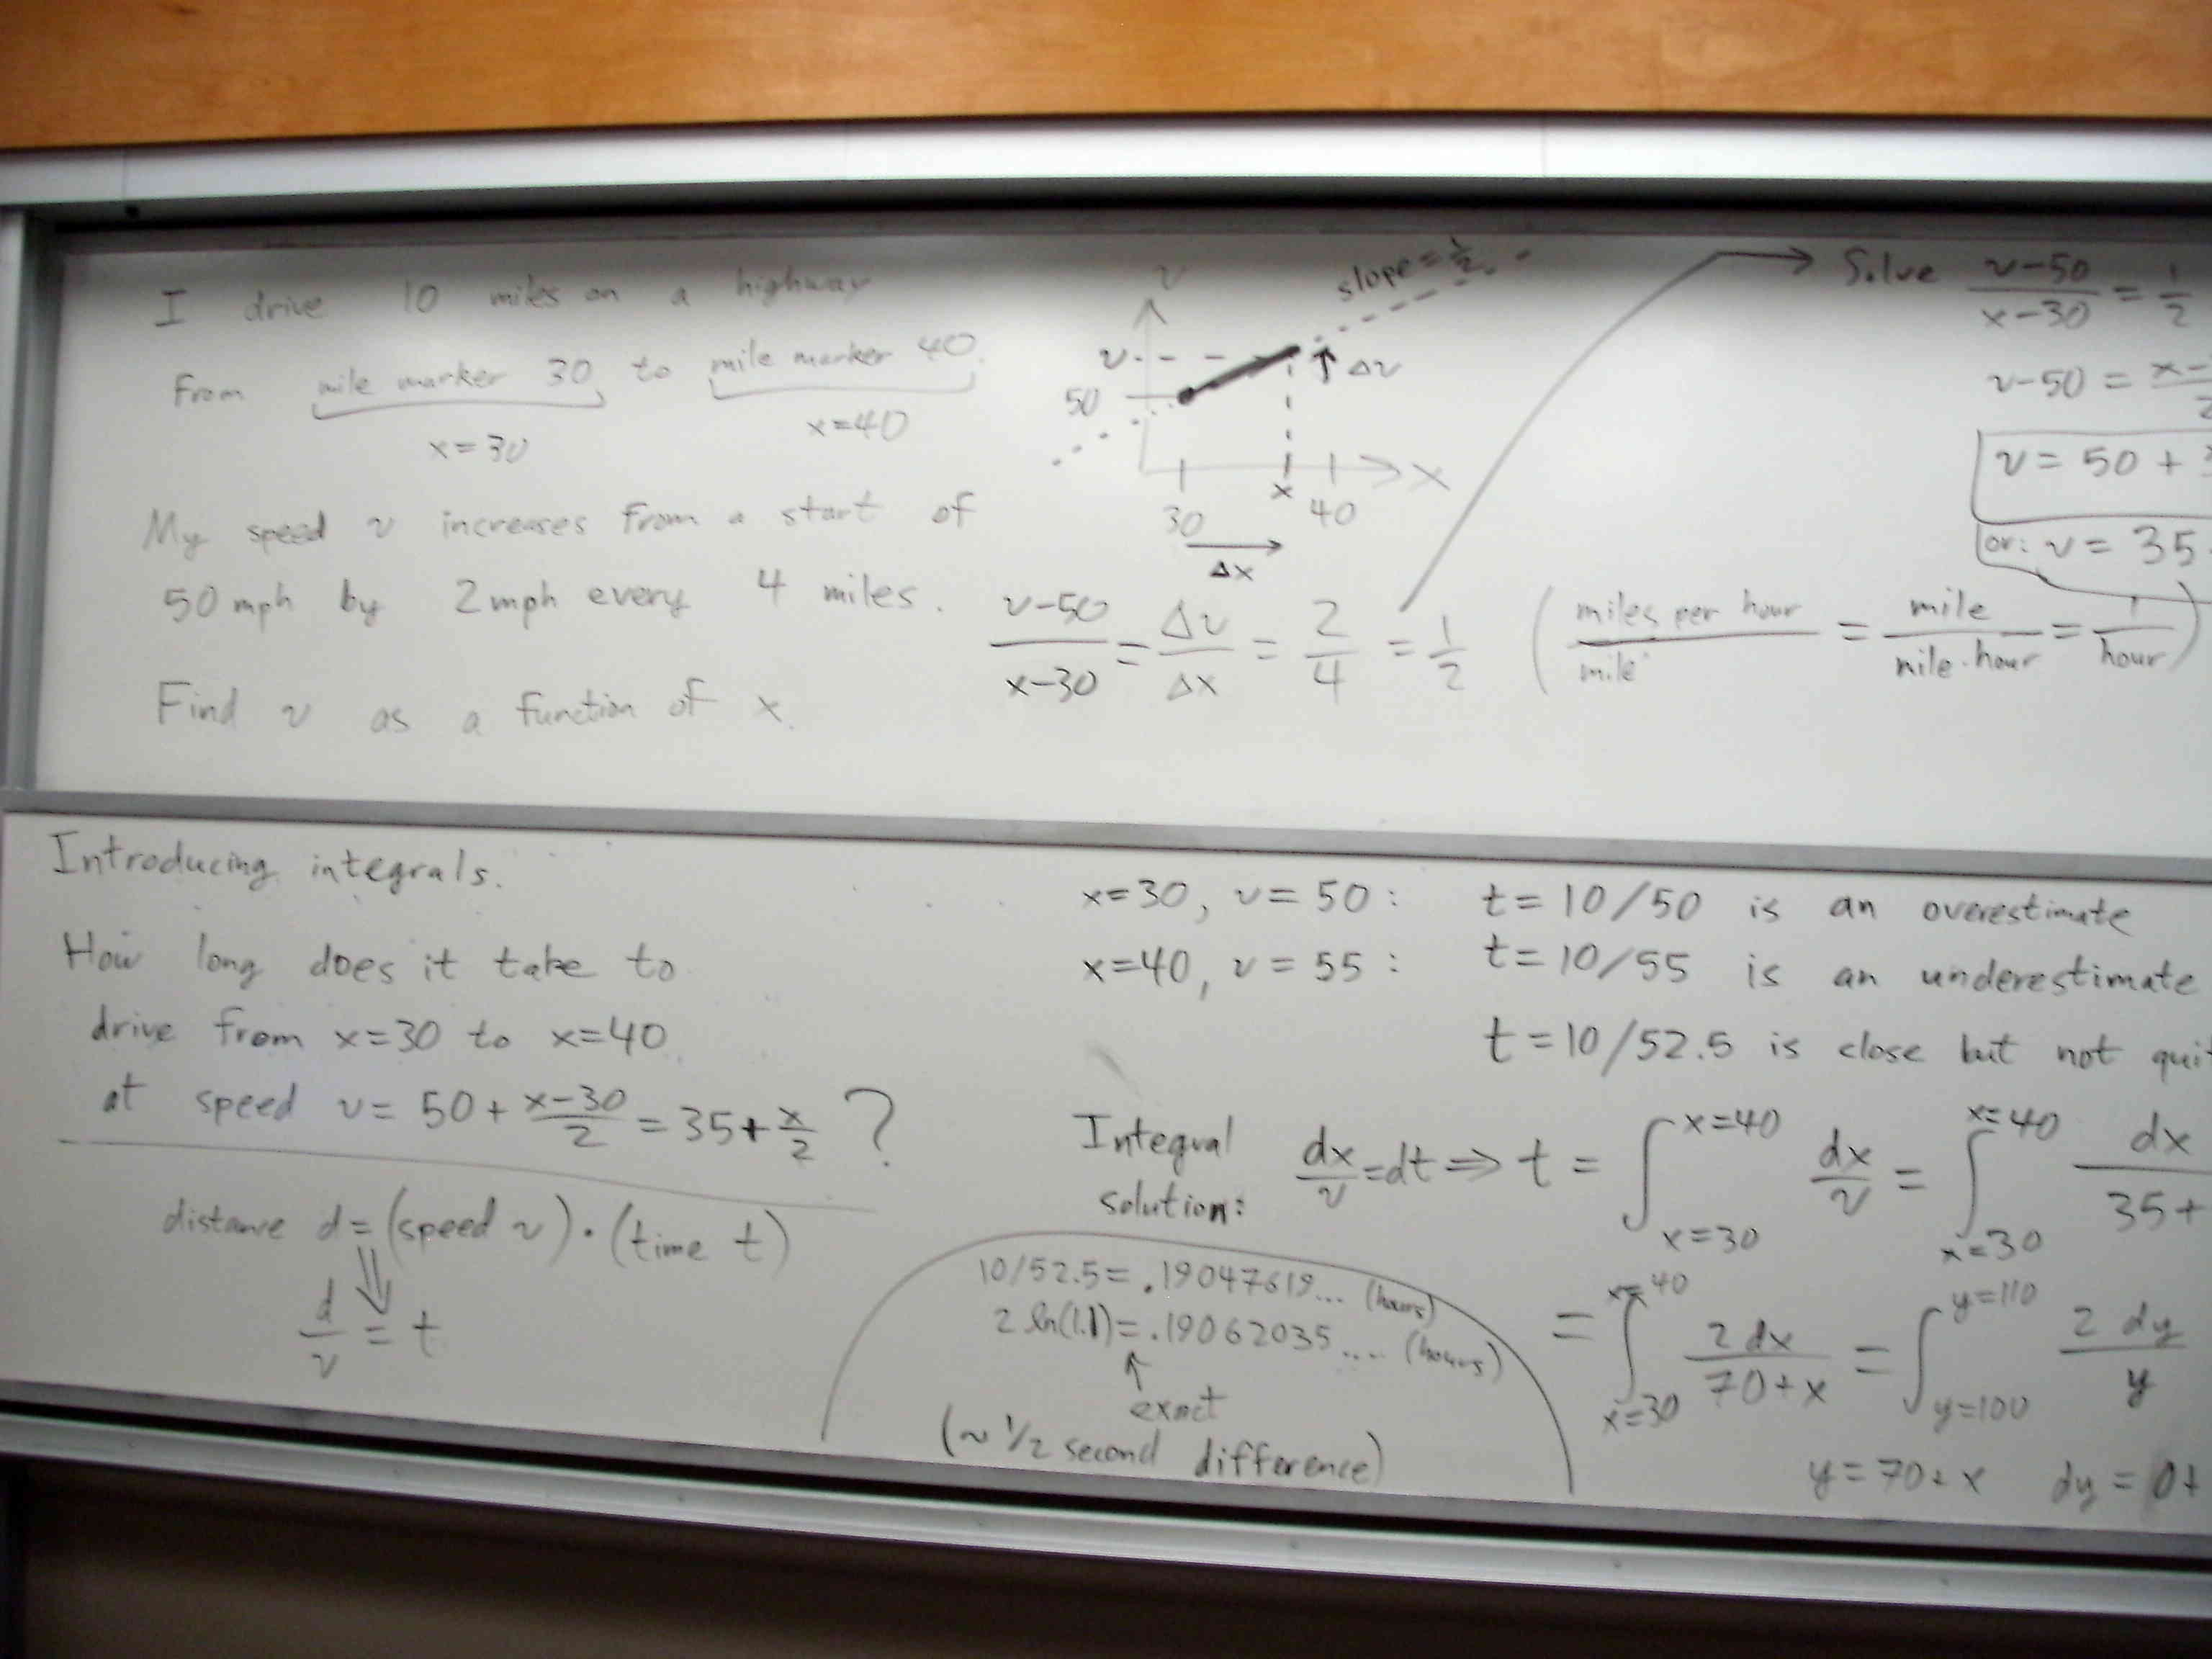 I drive 10 miles on a highway
from mile marker 30 to mile marker 40.
x=30
x=40
My speed v increases from a start of
50 mph by 2mph every 4 miles.
Find v as a function of x.
v
slope=½
v
Δv
50
x
x
30
40
Δx
v-50/x-30 = Δv/Δx = 2/4 = 1/2
(miles per hour/mile = mile/mile·hour = 1/hour)
Solve v-50/x-30 = 1/2
v-50 = x-
v = 50 +
or: v = 35
Introducing integrals.
How long does it take to
drive from x=30 to x=40
at speed v= 50+ x-30/2 = 35+ x/2 ?
distance d= (speed v)·(time t)
⇓
d/v = t
x=30, v= 50: t= 10/50 is an overestimate
x=40, v= 55: t= 10/55 is an underestimate
t=10/52.5 is close but not
Integral
solution:
dx/v =dt ⇒ t = ∫ x=40 x=30 dx/v = ∫ x=40 x=30 dx/35+
= ∫ x=40 x=30 2dx/70+x = ∫ y=110 y=100 2 dy/y
y=70+x dy = 0+
10/52.5= .19047619... (hours)
2 ln(1.1)= .19062035.... (hours)
↑
exact
(~ 1/2 second difference)